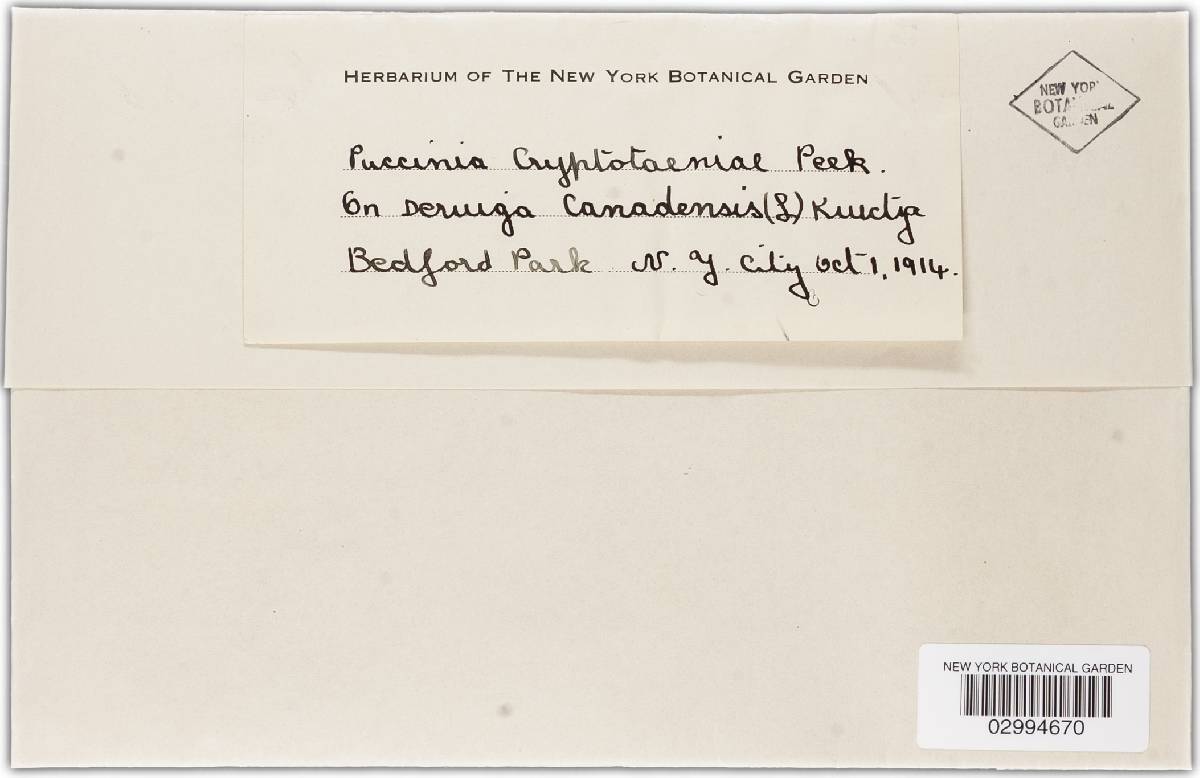 HERBARIUM OF THE NEW YORK BOTANICAL GARDEN
NEW YOR
BOTA
GA EN
Puccinia Cryptotaeniae Peck.
On Deringa Canadensis (L) Kuntze
Bedford Park N. Y. City Oct 1, 1914.
NEW YORK BOTANICAL GARDEN
02994670